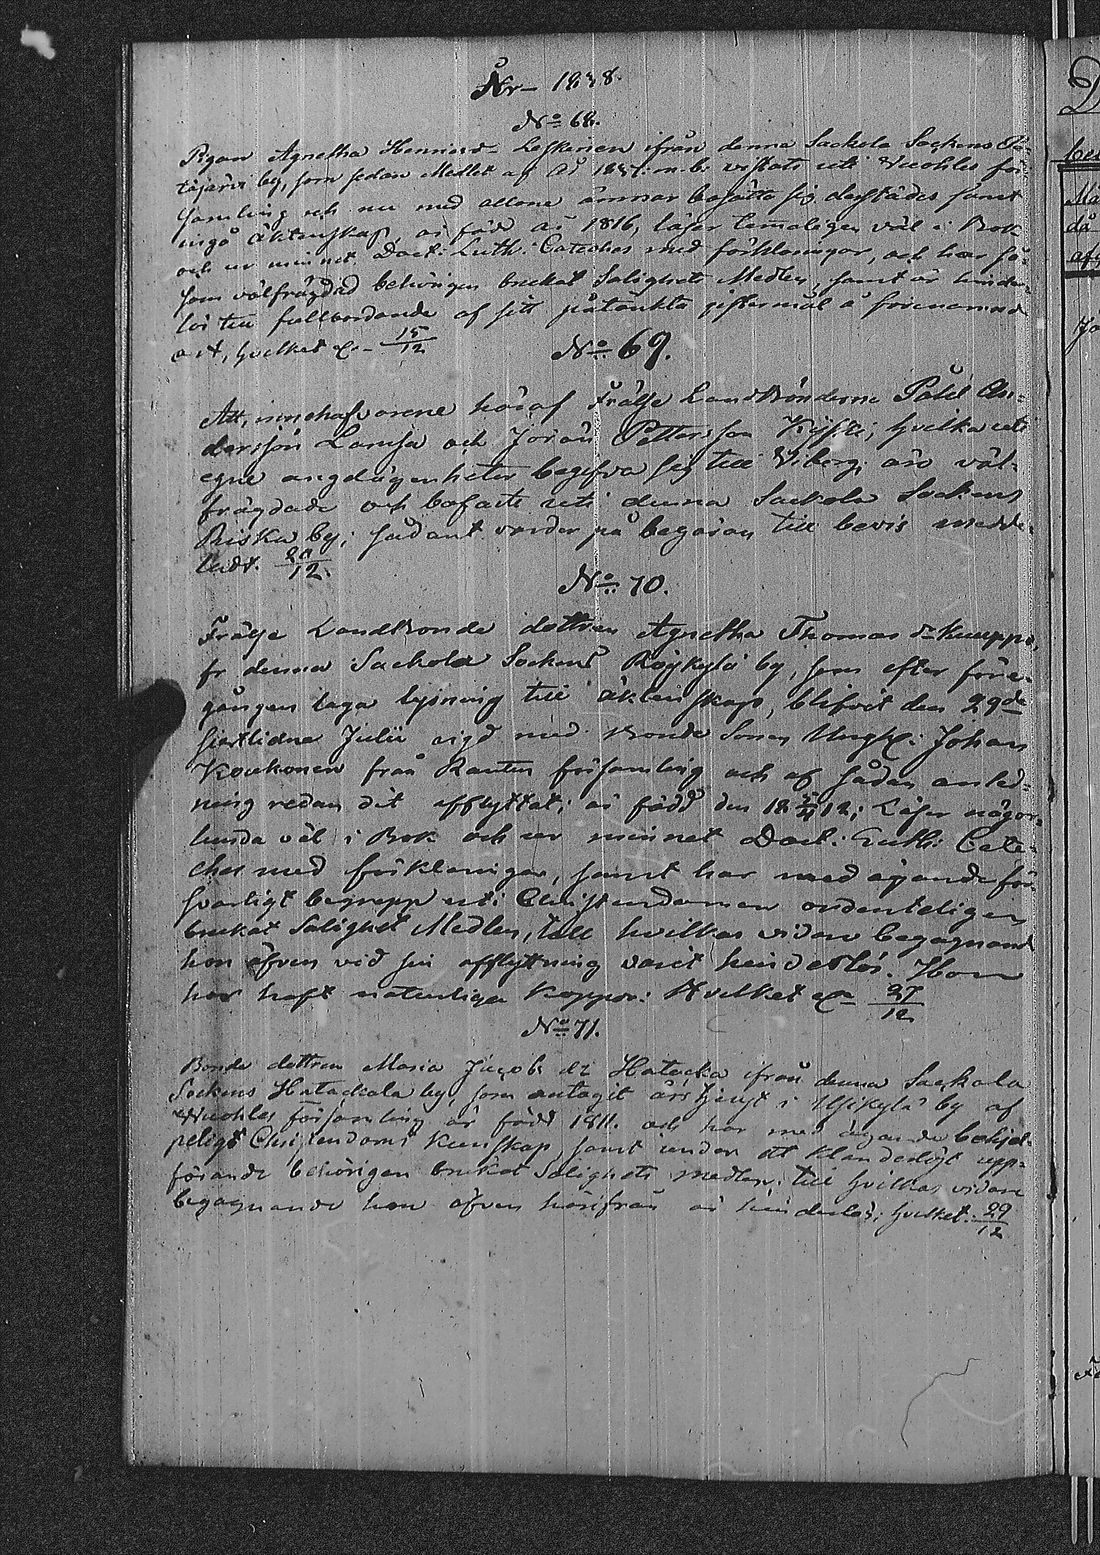 År 1838.
No 68.
Pigan Agnetha Hennies dr Leskinen ifrån denna Sackola Sockens
järvi by, som sedan Medlet af År 1837 m.b. vistats uti Wuohles för-
samling och nu med allone ämnar bosätta sig dersfädes samt
ingå äktenskap är född år 1816, läser temeligen väl i Bok
och ur minnet Doct: Luth: Cateches med förklaringar, och har så-
som välfrägdad behörigen brukat Salighets Medlen, samt är hinder-
lös till fullbordande af sitt påtänkta giftermål å förenämnde
ort, hvilket &c 15/12
No 69.
Att innehafvarene häraf Frälse Landbönderne Påhl An-
dersson Lamsa och Jöran Pettersson Kiiski, hvilka uti
egne angelägenheter begifva sig till Viborg, äro väl-
frägdade och bofaste uti denna Sackola Sockens
Riska by; sådant varder på begäran till bevis medde-
ladt. 20/12.
No 70.
Frälse Landbonde dottren Agnetha Thomas dr Kumppu,
fr denna Sackola Sockens Röykylä by, som efter före-
gången laga lysning till äktenskap, blifvit den 29de
sistlidne Julii vigd med Bonde Sonen Unghk: Johan
Koukonen från Rautus församling och af sådan anled-
ning redan dit afflyttat; är född den 18 12; Läser någor-
lunda väl i Bok och ur minnet Doct: Luth: Cate-
ches med förklaringar, samt har med ägande för-
svarligt begrepp uti Christendomen ordenteligen
brukat Salighets Medlen, till hvilkas vidare begagnande
hon äfven vid sin afflyttning varit hinderlös. Hon
har haft naturliga Koppor: Hvilket &c 27/12
No 71.
Bonde dottren Maria Jacobs dr Hatacka ifrån denna Sackola
Sockens Hatackala by, som antagit årstjenst i by af
Wuohles församling är född 1811. och har med ägande behjel-
peligt Christendoms Kunskap, samt under ett klanderlöst upp-
förande behörigen brukat Salighets medlen; till hvilkas vidare
begagnande hon äfven härifrån är hinderlös; hvilket. 29/12